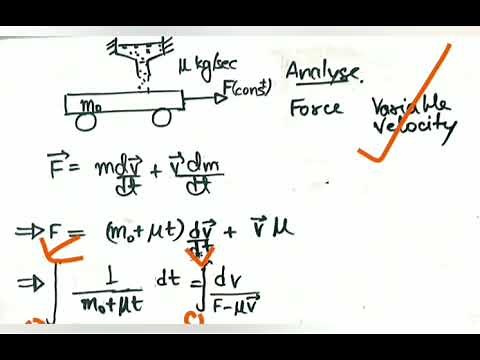 μ kg/sec
F(const)
m₀
Analyse.
Force Variable velocity
F⃗ = m dv⃗/dt + v⃗ dm/dt
⇒ F = (m₀+μt) dv⃗/dt + v⃗ μ
⇒ ∫ 1/(m₀+μt) dt = ∫ dv/(F-μv⃗)